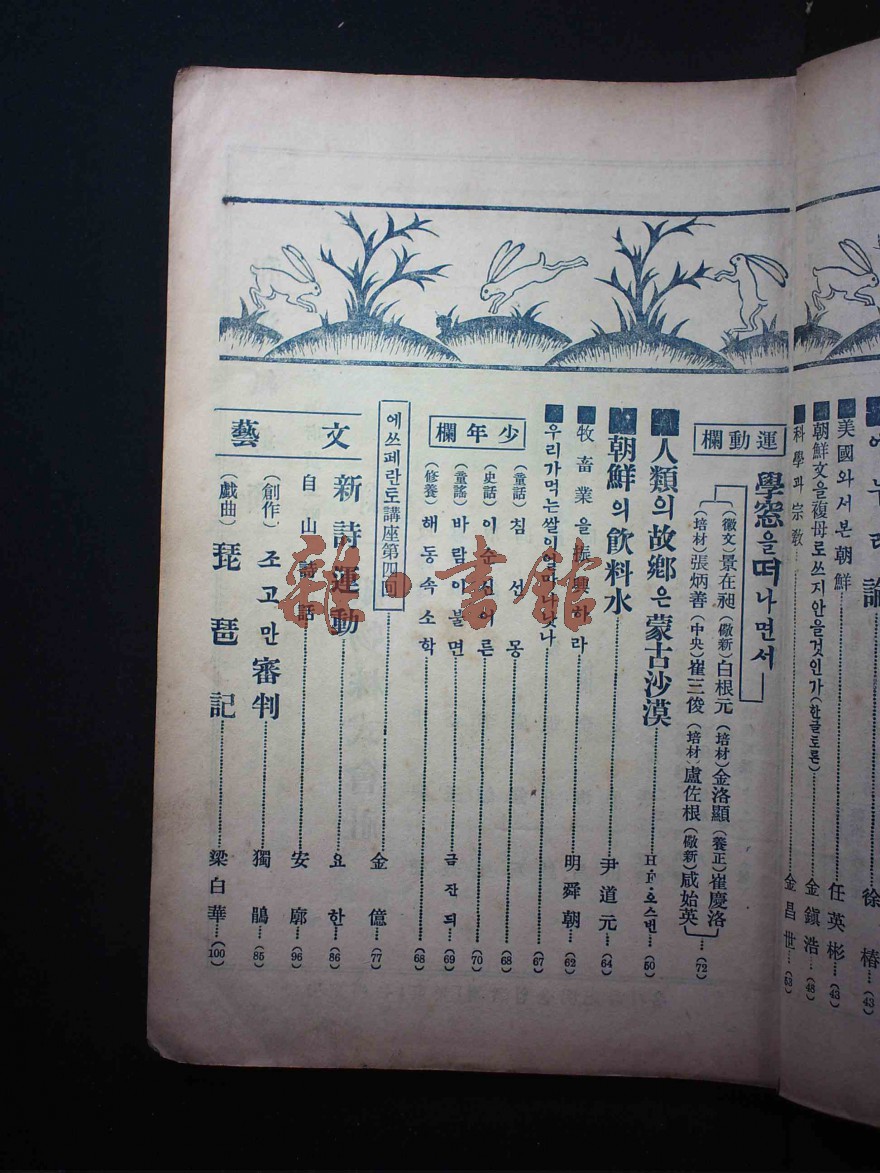 論
徐椿…(43)
美國와서본朝鮮……任英彬…(43)
朝鮮文을複母로쓰지안을것인가(한글토론)……金鎭浩…(48)
科學과宗敎……金昌世…(53)
運動欄
學窓을떠나면서
(徽文)景在昶(儆新)白根元(培材)金洛顯(養正)崔慶洛
(培材)張炳善(中央)崔三俊(培材)盧佐根(儆新)咸始英…(72)
人類의故鄕은蒙古沙漠……H·F·오스번…(50)
朝鮮의飮料水……尹道元…(64)
牧畜業을振興하라……明舜朝…(62)
우리가먹는쌀이얼마나낫나……(67)
少年欄
(童話)침선몽……(68)
(史話)이순신어른……(70)
(童謠)바람이불면……금잔듸…(69)
(修養)해동속소학……(68)
에쓰페란토講座第四回……金億…(77)
文藝
新詩運動……요한…(86)
自山詩話……安廓…(96)
(創作)조고만審判……獨鵑…(85)
(戱曲)琵琶記……梁白華…(100)
雜·書館